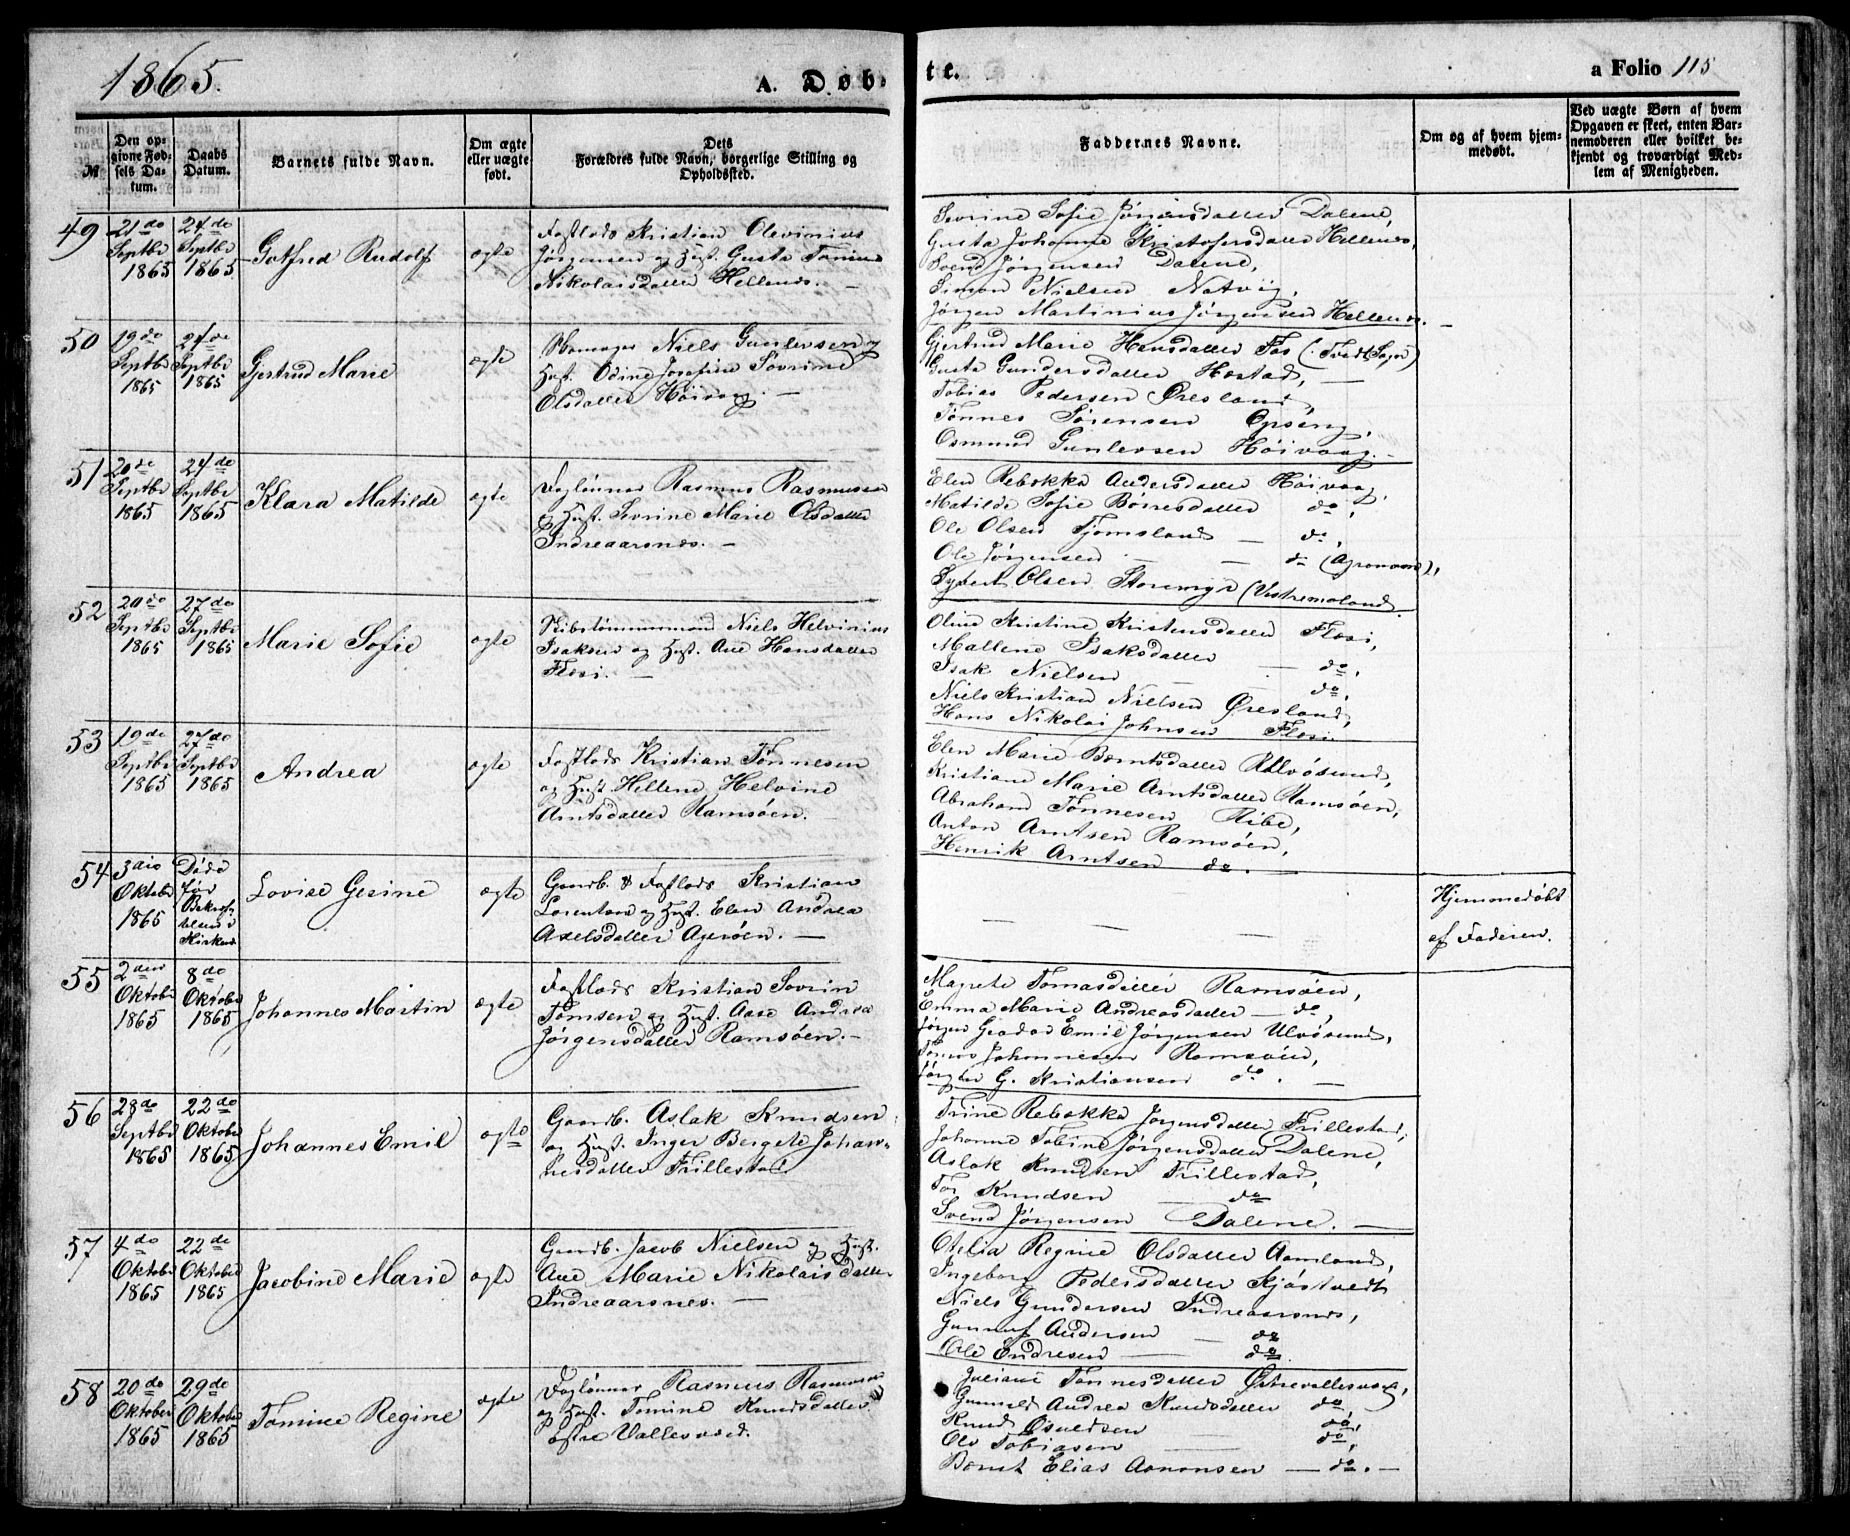 1865.
A. Døb
te.
a Folio 115
№
Den op-
givne Fød-
sels Da-
tum.
Daabs
Datum.
Barnets fulde Navn.
Om ægte
eller uægte
født.
Dets
Forældres fulde Navn, borgerlige Stilling og
Opholdssted.
Faddernes Navne.
Om og af hvem hjem-
medøbt.
Ved uægte Børn af hvem
Opgaven er skeet, enten Bar-
nemoderen eller hvilket be-
kjendt og troværdigt Med-
lem af Menigheden.
49
21de
Septbr
1865
24de
Septbr
1865
Gotfred Rudolf
ægte
Fastlods Kristian Olevinius
Jørgensen og Hust. Gusta Tomine
Nikolaisdatter Hellenes. —
Sevrine Sofie Jørgensdatter Dalene,
Gusta Johanne Kristofersdatter Hellenes,
Svend Jørgensen Dalene,
Simon Nielsen Natvig,
Jørgen Martinius Jørgensen Hellenes. —
50
19de
Septbr
1865
24de
Septbr
1865
Gjertrud Marie
ægte
Niels Gunlevsen og
Hust. Odine Josefine Sovrine
Olsdatter Høivaag. —
Gjertrud Marie Hansdatter Fos (Tvedt Sogn)
Gusta Gundersdatter Hæstad, —
Tobias Pedersen Øresland,
Tønnes Sørensen Opseng,
Osmund Gunlevsen Høivaag. —
51
20de
Septbr
1865
24de
Septbr
1865
Klara Matilde
ægte
Daglønner Rasmus Rasmussen
og Hust. Sovrine Marie Olsdatter
Indreaarsnes. —
Elen Rebekka Andersdatter Høivaag,
Matilde Sofie Børresdatter do,
Ole Olsen Tjomsland — do,
Ole Jørgensen — — do (Agronom),
Sybert Olsen Storemyr (Vestremoland)
52
20de
Septbr
1865
27de
Septbr
1865
Marie Sofie
ægte
Skibstømmermand Niels Helvinius
Isaksen og Hust. Ane Hansdatter
Flosi. —
Oline Kristine Kristensdatter Flosi,
Mallene Isaksdatter — do,
Isak Nielsen — do,
Niels Kristian Nielsen Øresland,
Hans Nikolai Johnsen Flosi
53
19de
Septbr
1865
27de
Septbr
1865
Andrea
ægte
Fastlods Kristian Tønnesen
og Hust. Hellene Helvine
Arntsdatter Ramsøen. —
Elen Marie Berntsdatter Ulvøsund,
Kristiane Marie Arntsdatter Ramsøen,
Abraham Tønnesen Ribe,
Anton Arntsen Ramsøen,
Henrik Arntsen do. —
54
3die
Oktober
1865
Døde
før
Bekræf-
telsen i
Kirken
Lovise Gesine
ægte
Gaardb. & Fastlods Kristian
Lorentsen og Hust. Elen Andrea
Axelsdatter Agerøen. —
— — —
Hjemmedøbt
af Faderen.
55
2den
Oktober
1865
8de
Oktober
1865
Johannes Martin
ægte
Fastlods Kristian Sovrin
Tomsen og Hust. Aase Andrea
Jørgensdatter Ramsøen. —
Magrete Tomasdatter Ramsøen,
Emma Marie Andreasdatter — do,
Jørgen Emil Jørgensen Ulvøsund,
Tomas Johannesen Ramsøen,
Jørgen G. Kristiansen do. —
56
28de
Septbr
1865
22de
Oktober
1865
Johannes Emil
ægte
Gaardb. Aslak Knudsen
og Hust. Inger Bergete Johan-
nesdatter Trillestad
Trine Rebekka Jørgensdatter Trillestad,
Johanne Tobine Jørgensdatter Dalene,
Aslak Knudsen Trillestad,
Tor Knudsen — do
Svend Jørgensen Dalene. —
57
4de
Oktober
1865
22de
Oktober
1865
Jacobine Marie
ægte
Gaardb. Jacob Nielsen og Hust.
Ane Marie Nikolaisdatter
Indreaarsnes. —
Otelia Regine Olsdatter Aamland,
Ingeborg Pedersdatter Skjøstvedt
Niels Gundersen Indreaarsnes,
Gunnuf Andersen — do
Ole Endresen — do.
58
20de
Oktober
1865
29de
Oktober
1865
Tomine Regine
ægte
Daglønner Rasmus Rasmussen
og Hust. Tomine Knudsdatter
østre Vallesværd.
Juliane Tønnesdatter Østrevallesværd,
Gunnild Andrea Knudsdatter do,
Knud Osuldsen do,
Ole Tobiasen — do,
Bernt Elias Aanonsen — do. —